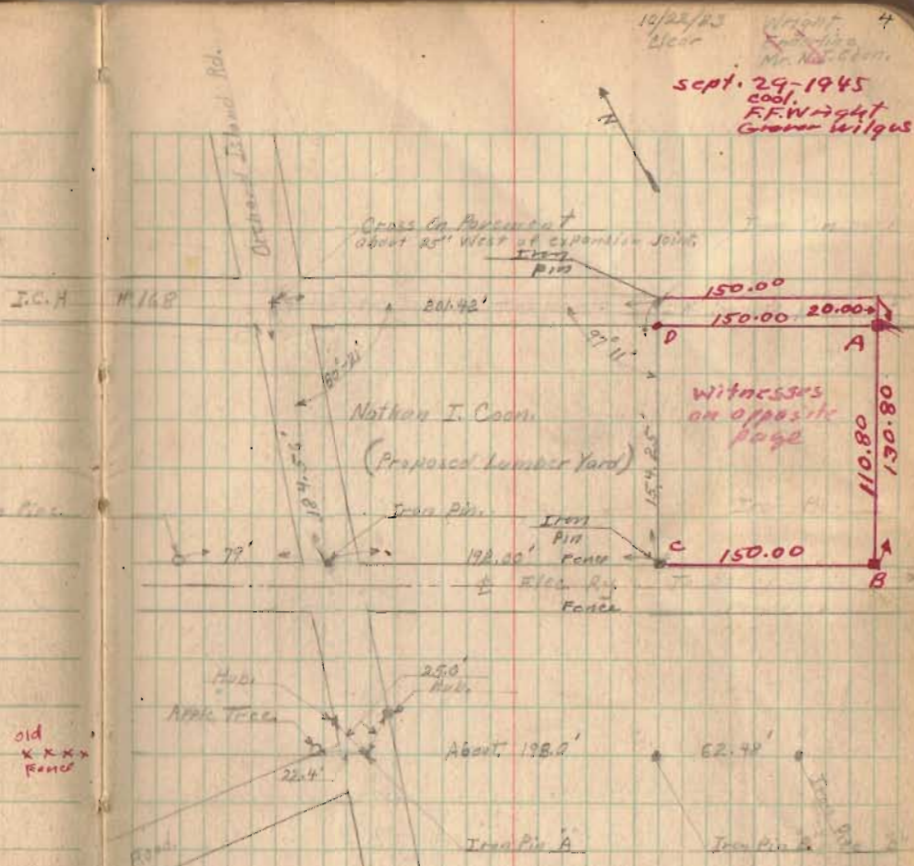 4
10/22/23
Clear
Wright
Mr. N.I. Coon.
sept. 29-1945
cool.
F.F. Wright
Grover Wilgus
N
Orchard Island Rd.
Cross En Pavement
about 25" West of expansion joint.
Iron
Pin
I.C.H № 168
201.42'
150.00
150.00
20.00
D
A
97° 11'
80°-21'
Nathan I. Coon.
(Proposed Lumber Yard)
Witnesses
on opposite
page
184.55'
154.25'
110.80
130.80
Iron Pin.
Iron
Pin
79'
198.00'
Fence
C
150.00
B
℄ Elec. Ry.
Fence
Hub.
25.0'
Hub.
Apple Tree.
old
x x x x
Fence
About 198.0'
62.48'
22.4'
Road.
Iron Pin "A"
Iron Pin "B"
Iron Pipe